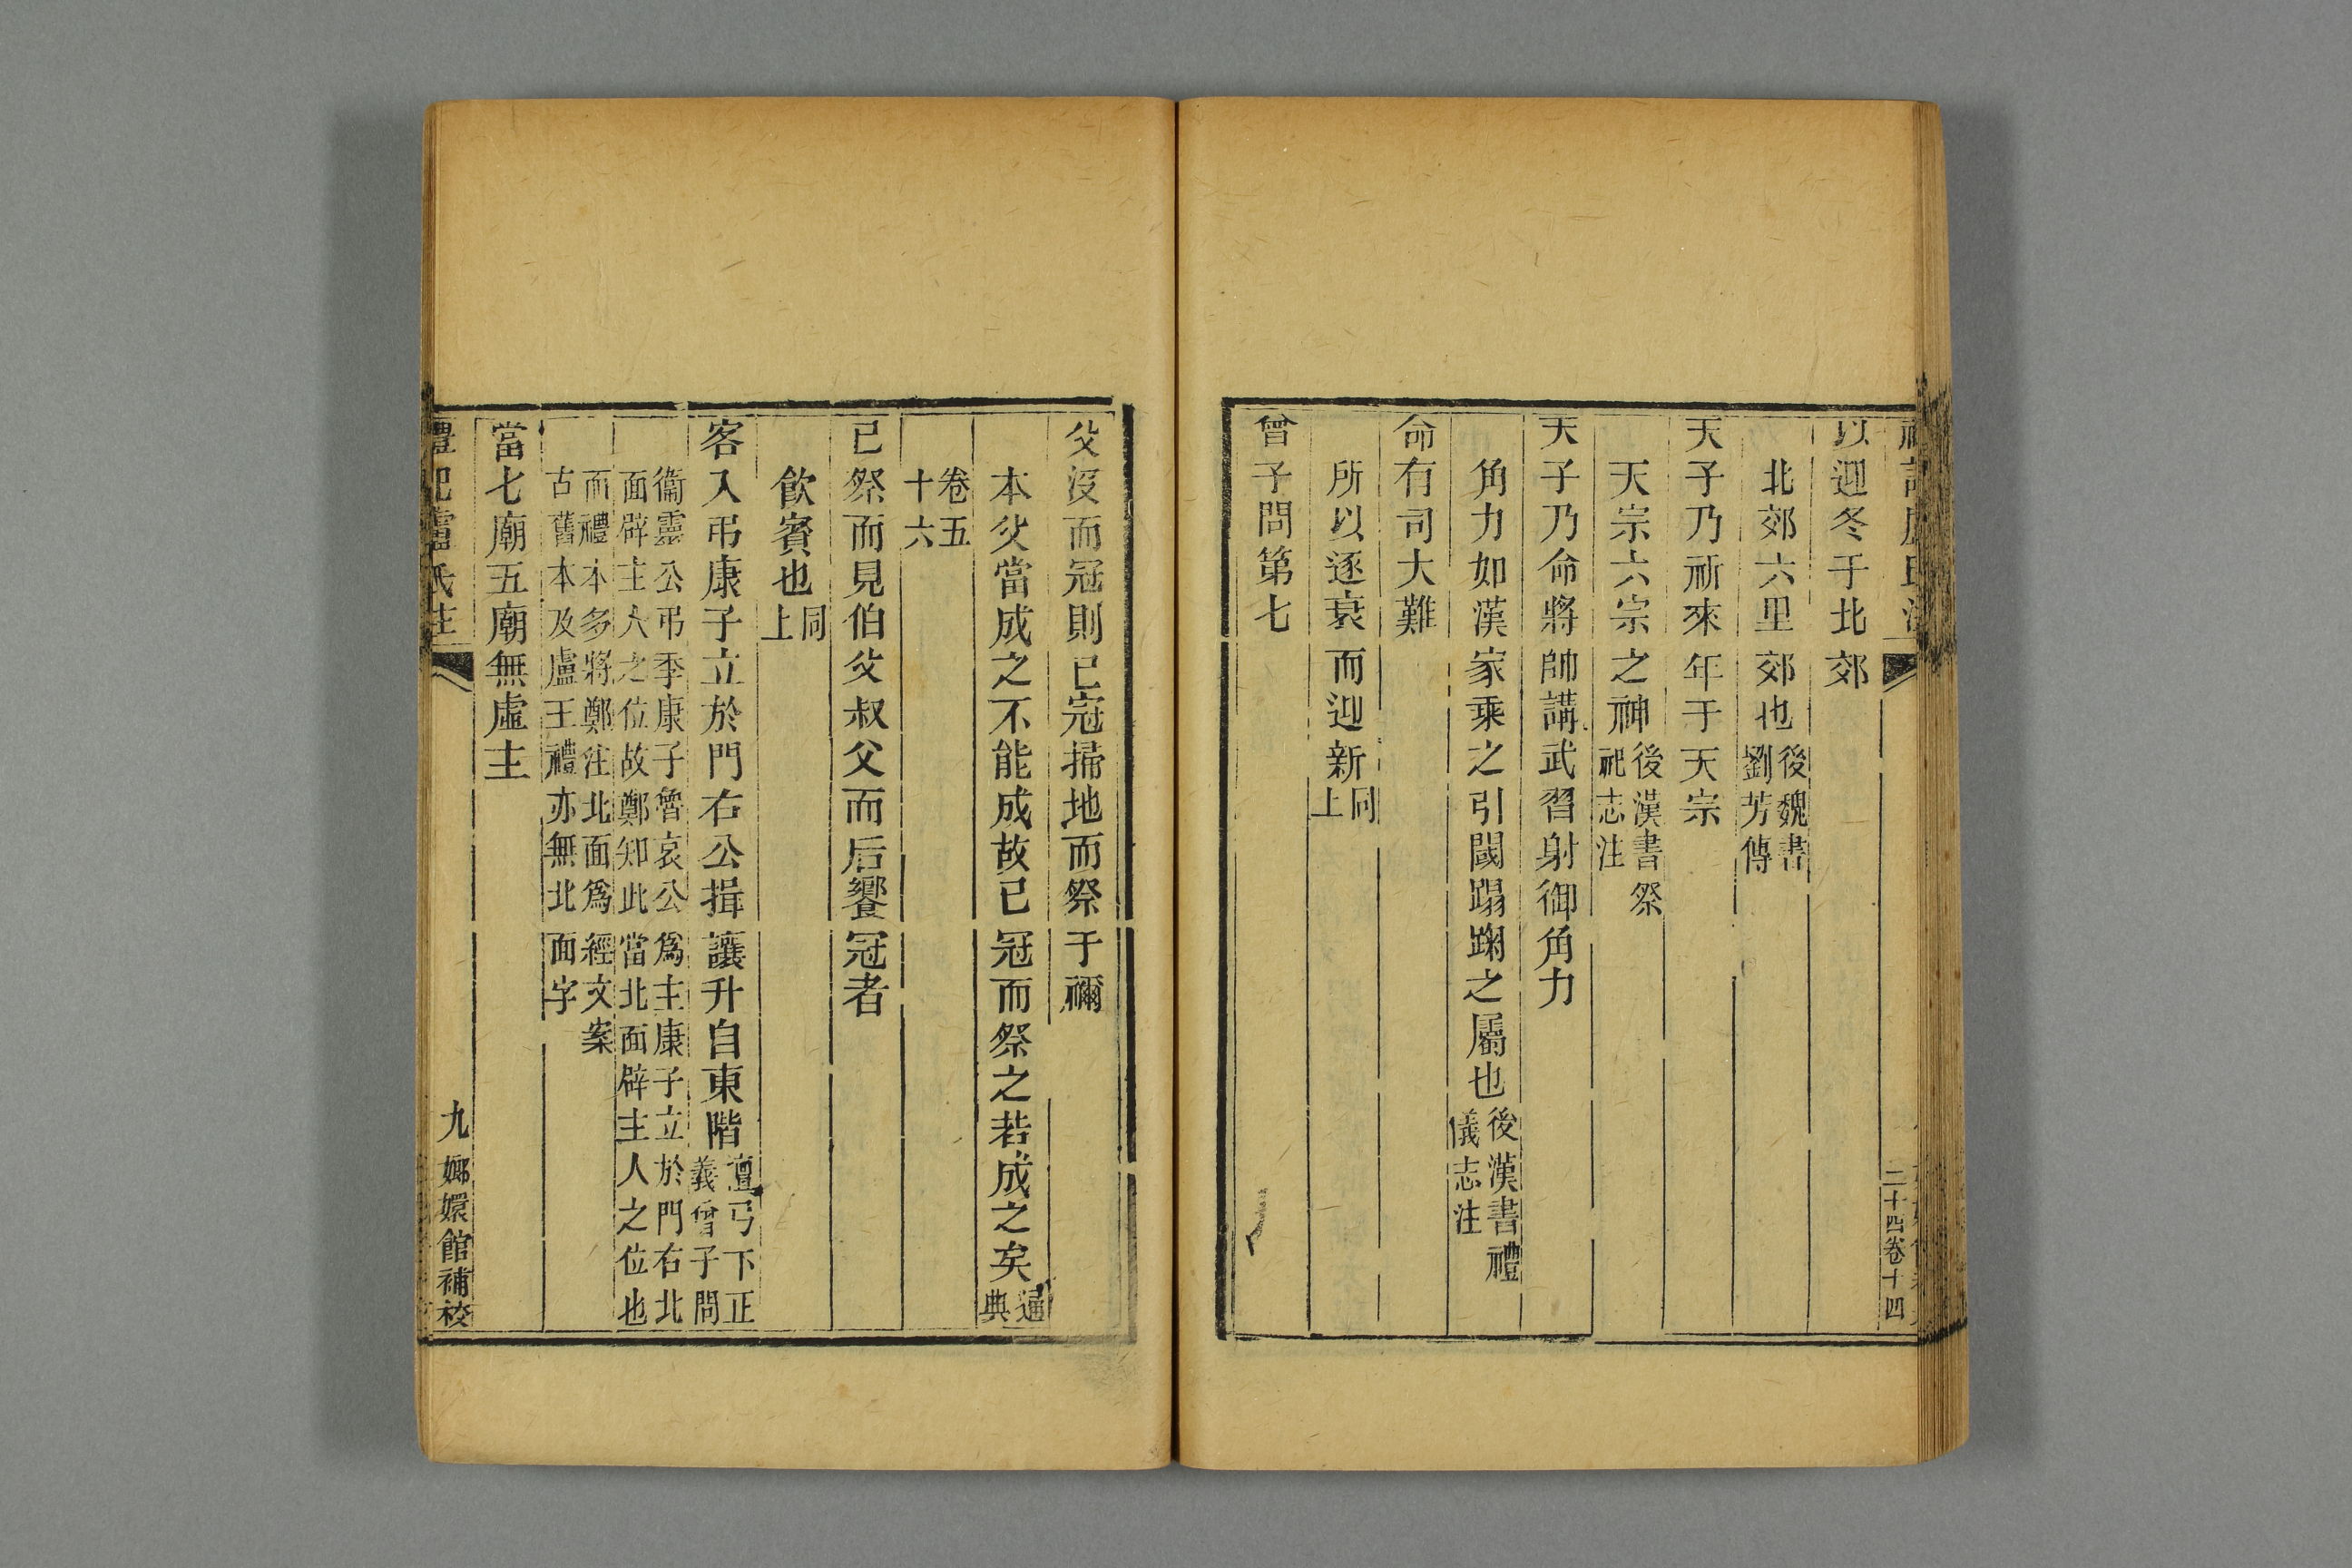 二十四卷十四
以迎冬于北郊
北郊六里郊也後魏書劉芳傳
天子乃祈來年于天宗
天宗六宗之神後漢書祭祀志注
天子乃命將帥講武習射御角力
角力如漢家乘之引閾蹋踘之屬也後漢書禮儀志注
命有司大難
所以逐衰而迎新同上
曾子問第七
父沒而冠則已冠掃地而祭于禰
本父當成之不能成故已冠而祭之若成之矣通典
卷五十六
已祭而見伯父叔父而后饗冠者
飲賓也同上
客入弔康子立於門右公揖讓升自東階檀弓下正義曾子問
衞靈公弔季康子魯哀公爲主康子立於門右北
面辟主人之位故鄭知此當北面辟主人之位也
而禮本多將鄭注北面爲經文案
古舊本及盧王禮亦無北面字
當七廟五廟無虛主
禮記盧氏注
九
嫏嬛館補校